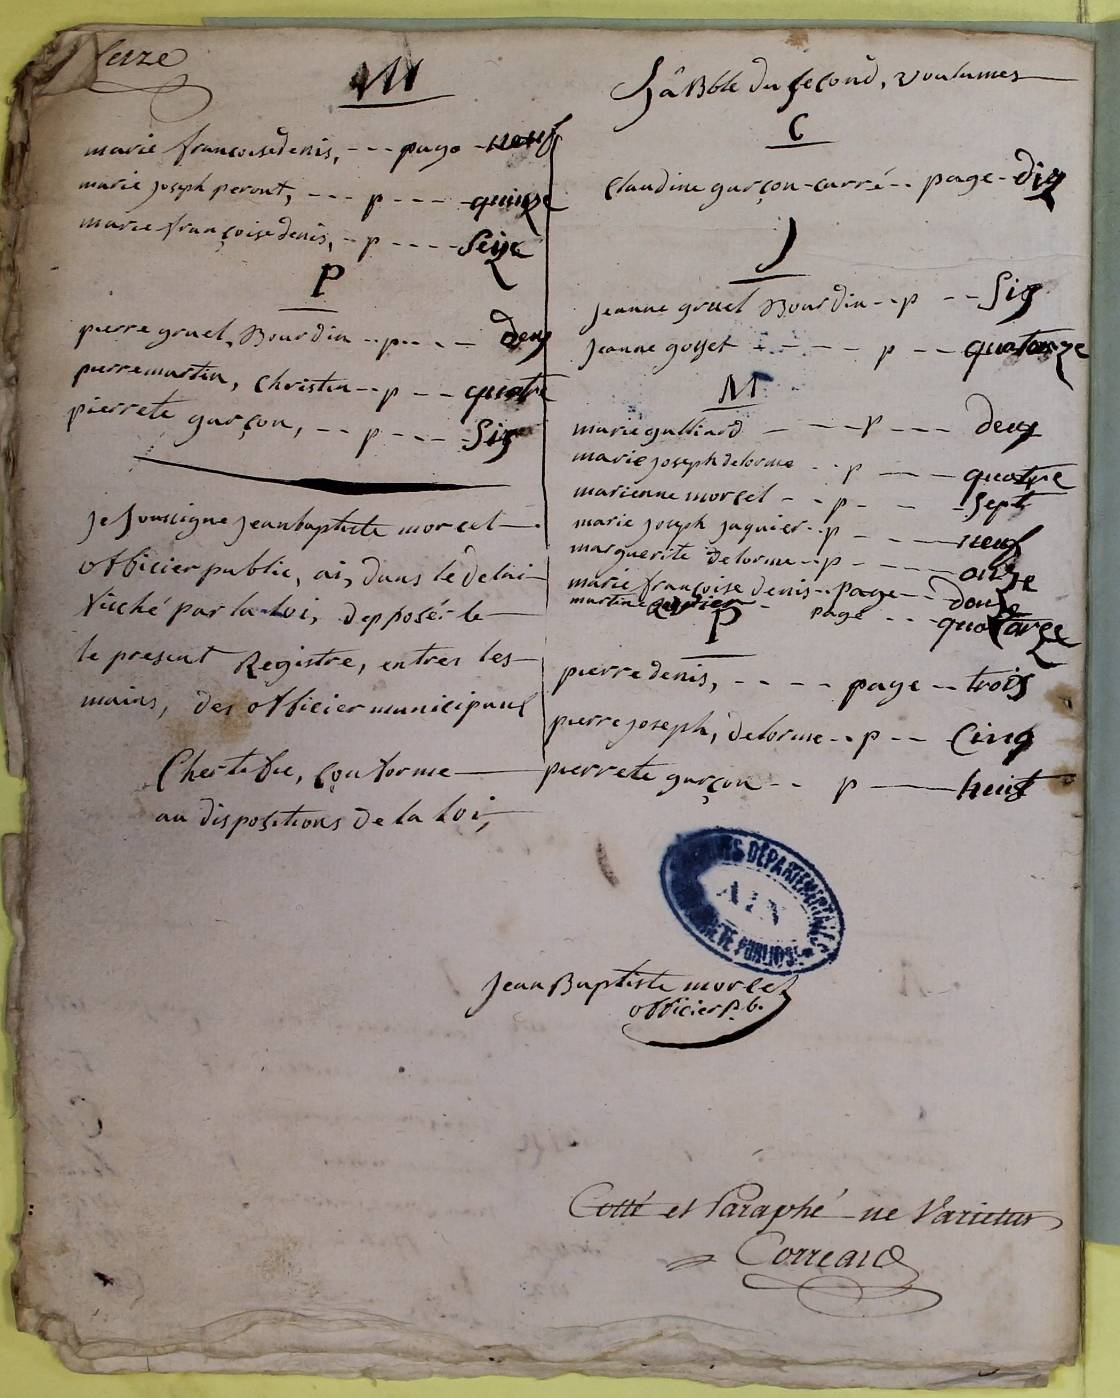 seize
M
marie francoise denis, --- page - neuf
marie joseph peront, --- p ---- quinze
marie françoise denis, - p ---- Seize
P
pierre gruel, Bourdin -- p --- deux
pierre martin, Christin -- p -- quatre
pierrete garçon, -- p ---- Six
je Soussigne jeanbaptiste morcel
officier public, ai, dans le delai
fixché par la loi, depposér le
le present Registre, entres les
mains, des officier municipaux
Chertefie, conforme
au dispositions de la loi,
Tâbble du second, voulumes
C
Claudine garçon-carré -- page - dix
J
jeanne gruel Bourdin -- p -- Six
jeanne gosset - - - - p -- quatorze
M
marie galliard - --- p --- deux
marie joseph delorme -- p --- quatre
marienne morcel - - p - - Sept
marie joseph jaquier -- p --- neuf
marguerite delorme -- p --- onze
marie françoise denis -- page -- douze
martin - page --- quatorze
P
pierre denis, ---- page -- trois
pierre joseph, delorme -- p -- Cinq
pierrete garçon -- p --- huist
ARCHIVES DÉPARTEMENTALES
AIN
PROPRIÉTÉ PUBLIQUE
Jean Baptiste morcel
officier P. b.
Cotté et Paraphé ne Varietur
Correard